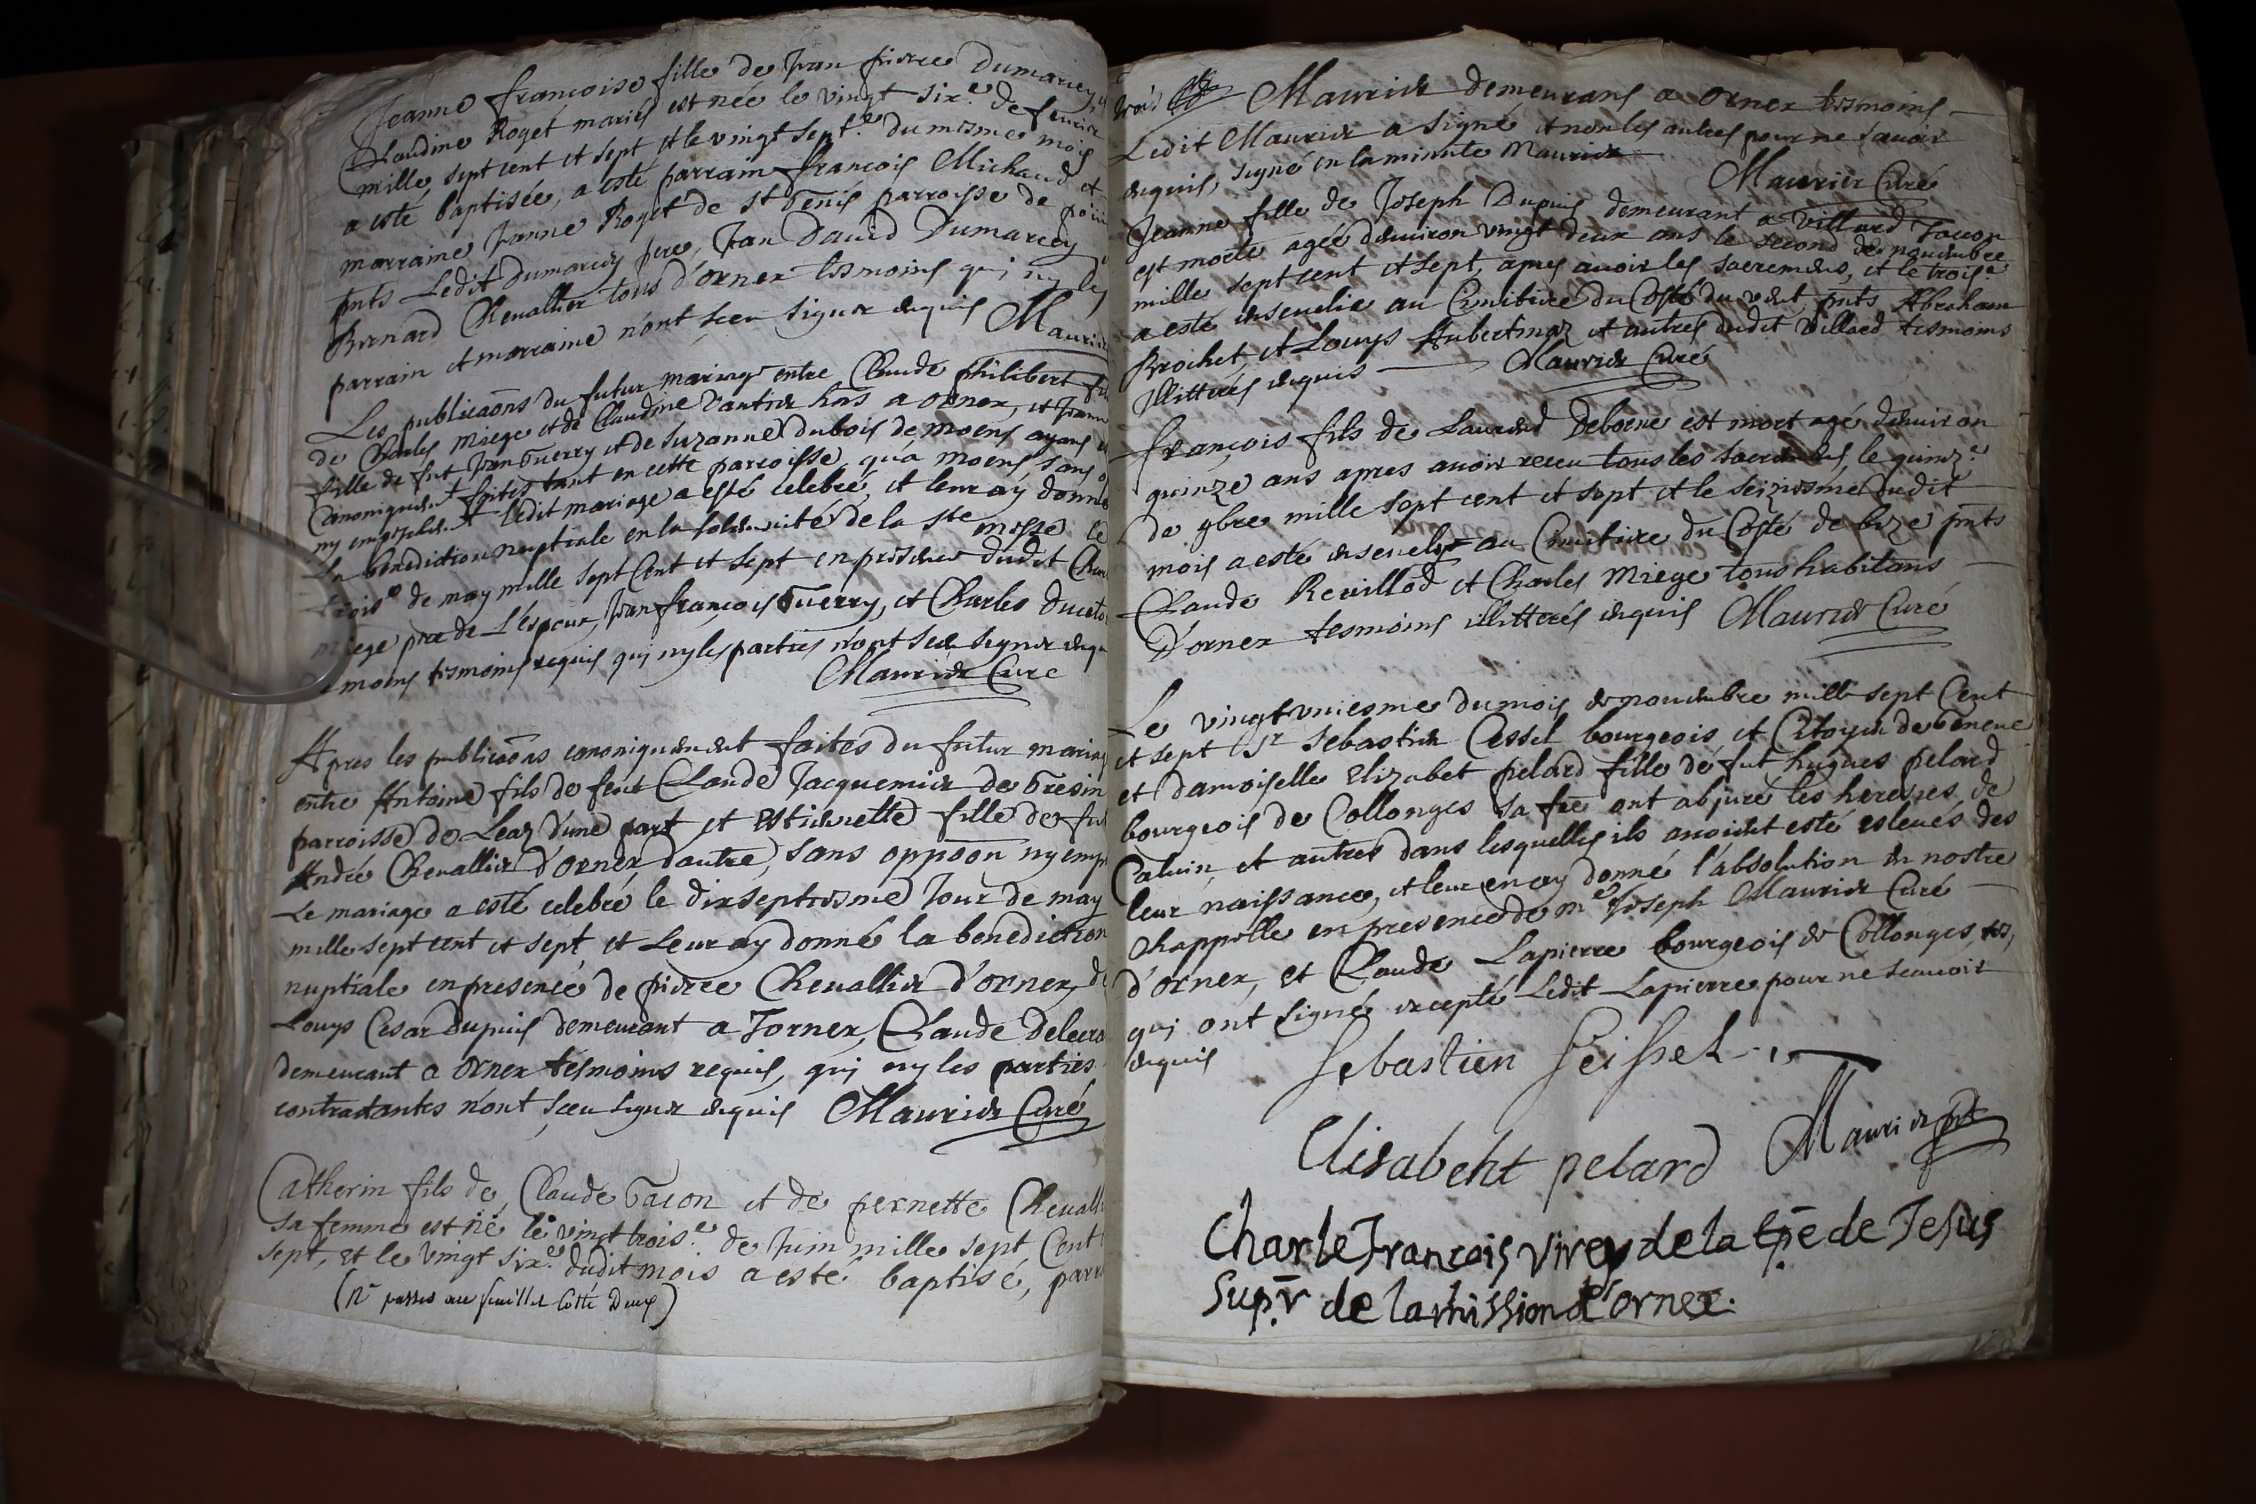 Jeanne françoise fille de Jean pierre Dumarcey
Claudine Roget mariés est née le vingt six.e de feurier
mille, sept cent et sept et le vingt sept.e du mesme mois
a esté baptisée, a esté parrain françois Michaud et
marraine Jeanne Roget de st Genis parroisse de
pnts Ledit Dumarcey pere, Jean David Dumarcey
Bernard Cheuallier tous d'ornex tesmoins qui ny les
parrain et marraine n'ont sceu signer enquis Maurier
Les publicaõns du futur mariage entre Claude philibert fils
de Charles Miege et de Claudine Vautier hãs a ornex, et Jeanne
fille de fut Jean Guerry et de Suzanne dubois de moens ayans
Canoniquem.t faites tant en cette parroisse qua moens sans
ny empeschem.t ledit mariage a esté celebré, et leur ay donné
la benediction nuptiale en la solemnité de la ste messe le
trois.e de may mille sept Cent et sept en presence dudit
miege pere de L'espoux, Jean françois Guerry, et Charles
de moens tesmoins requis qui ny les parties n'ont sceu signer enquis
Maurier Curé
Apres les publicaõns canoniquement faites du futur mariage
entre Antoine fils de feut Claude Jacquemier de Gresin
parroisse de Leaz d'une part et Estiennette fille de fut
André Cheuallier d'ornex, d'autre, sans oppõon ny emp
Le mariage a esté celebré le dixseptiesme Jour de may
mille sept cent et sept, et Leur ay donné la benediction
nuptiale en presence de pierre Cheuallier d'ornex, de
Louys Cesar Dupuis demeurant a Tornex, Claude
demeurant a ornex tesmoins requis, qui ny les parties
contractantes n'ont sceu signer enquis Maurier Curé
Catherin fils de Claude Tacon et de pernette
sa femme est né le vingt trois.e de Juin mille sept Cent
sept, et le vingt six.e dudit mois a esté baptisé,
passes au feuillet Cotte Deux)
Maurier demeurans a ornex tesmoins
Ledit Maurier a signé et non les autres pour ne sauoir
enquis, signé en la minute Maurier
Maurier Curé
Jeanne fille de Joseph Dupuis demeurant a Villard Tacon
est morte agée d'enuiron vingt deux ans le second de nouembre
mille sept cent et sept, apres auoir les sacremens, et le trois.e
a esté enseuelie au Cimitiere du Costé du vent pnts Abraham
Brochet et Louys Aubertinaz et autres dudit Villard tesmoins
illitterés enquis Maurier Curé
françois fils de Laurend Deborne est mort agé denuiron
quinze ans apres auoir receu tous les sacremens, le quinz.e
de 9bre mille sept cent et sept et le seiziesme dudit
mois a esté enseuely au Cimitiere du Costé de bize pnts
Claude Reuillod et Charles Miege tous habitans
D'ornex tesmoins illitterés enquis Maurier Curé
Le vingt vniesme du mois de nouembre mille sept Cent
et sept Sr Sebastien Cessel bourgeois et Citoyen de Geneue
et Damoiselle Elizabet pelard fille de fut hugues pelard
bourgeois de Collonges sa fẽe ont abjuré les heresies de
Caluin, et autres dans lesquelles ils auoient esté esleués des
leur naissance, et leur en ay donné l'absolution en nostre
chappelle en presence de m.e Joseph Maurier Curé
d'ornex, et Claude Lapierre bourgeois de Collonges, tes,
qui ont signé excepté Ledit Lapierre pour ne scauoir
enquis
Sebastien Seissel
Elisabeht pelard
Maurier
Charle François Virey de la Cpẽ de Jesus
Sup.r de la Mission d'ornex.